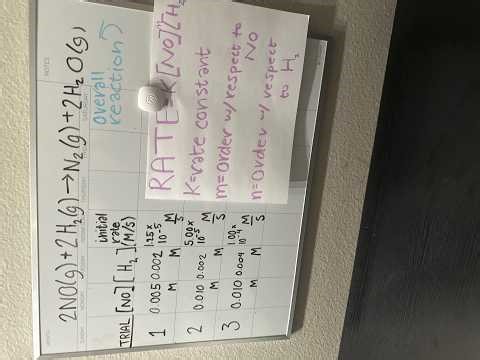 2NO(g)+2H₂(g)→N₂(g)+2H₂O(g)
overall
reaction
TRIAL [NO] [H₂] initial rate (M/s)
1 0.005 M 0.002 M 1.25 x 10⁻⁵ M/s
2 0.010 M 0.002 M 5.00 x 10⁻⁵ M/s
3 0.010 M 0.004 M 1.00 x 10⁻⁴ M/s
RATE=K[NO]ᵐ[H₂
K=rate constant
m=order w/respect to
NO
n=order w/respect
to H₂